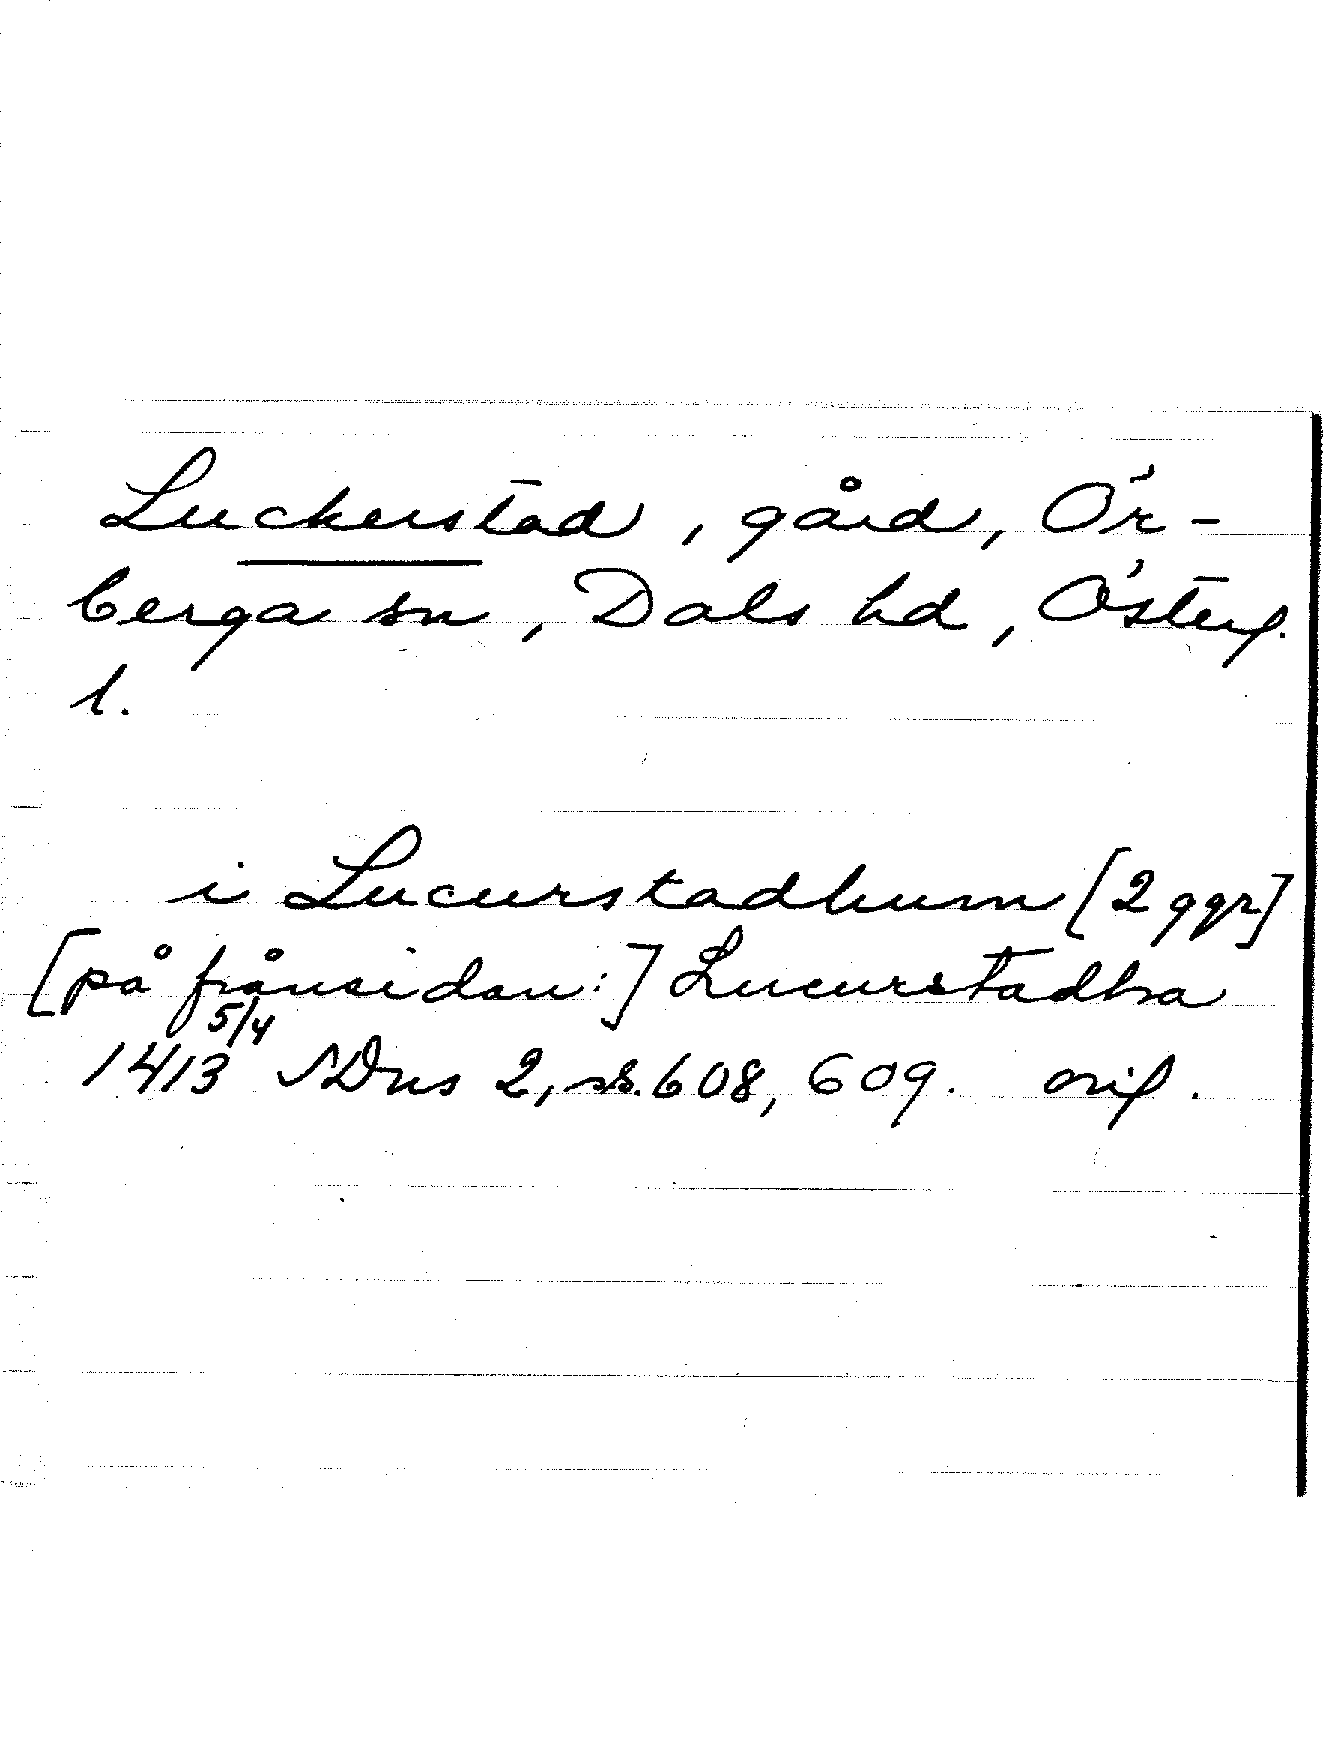 Luckerstad, gård, Ör-
berga sn, Dals hd, Österg.
l.
i Lucurstadhum [2 ggr]
[på frånsidan:] Lucurstadha
1413 5/4 SDns 2, ss. 608, 609. orig.